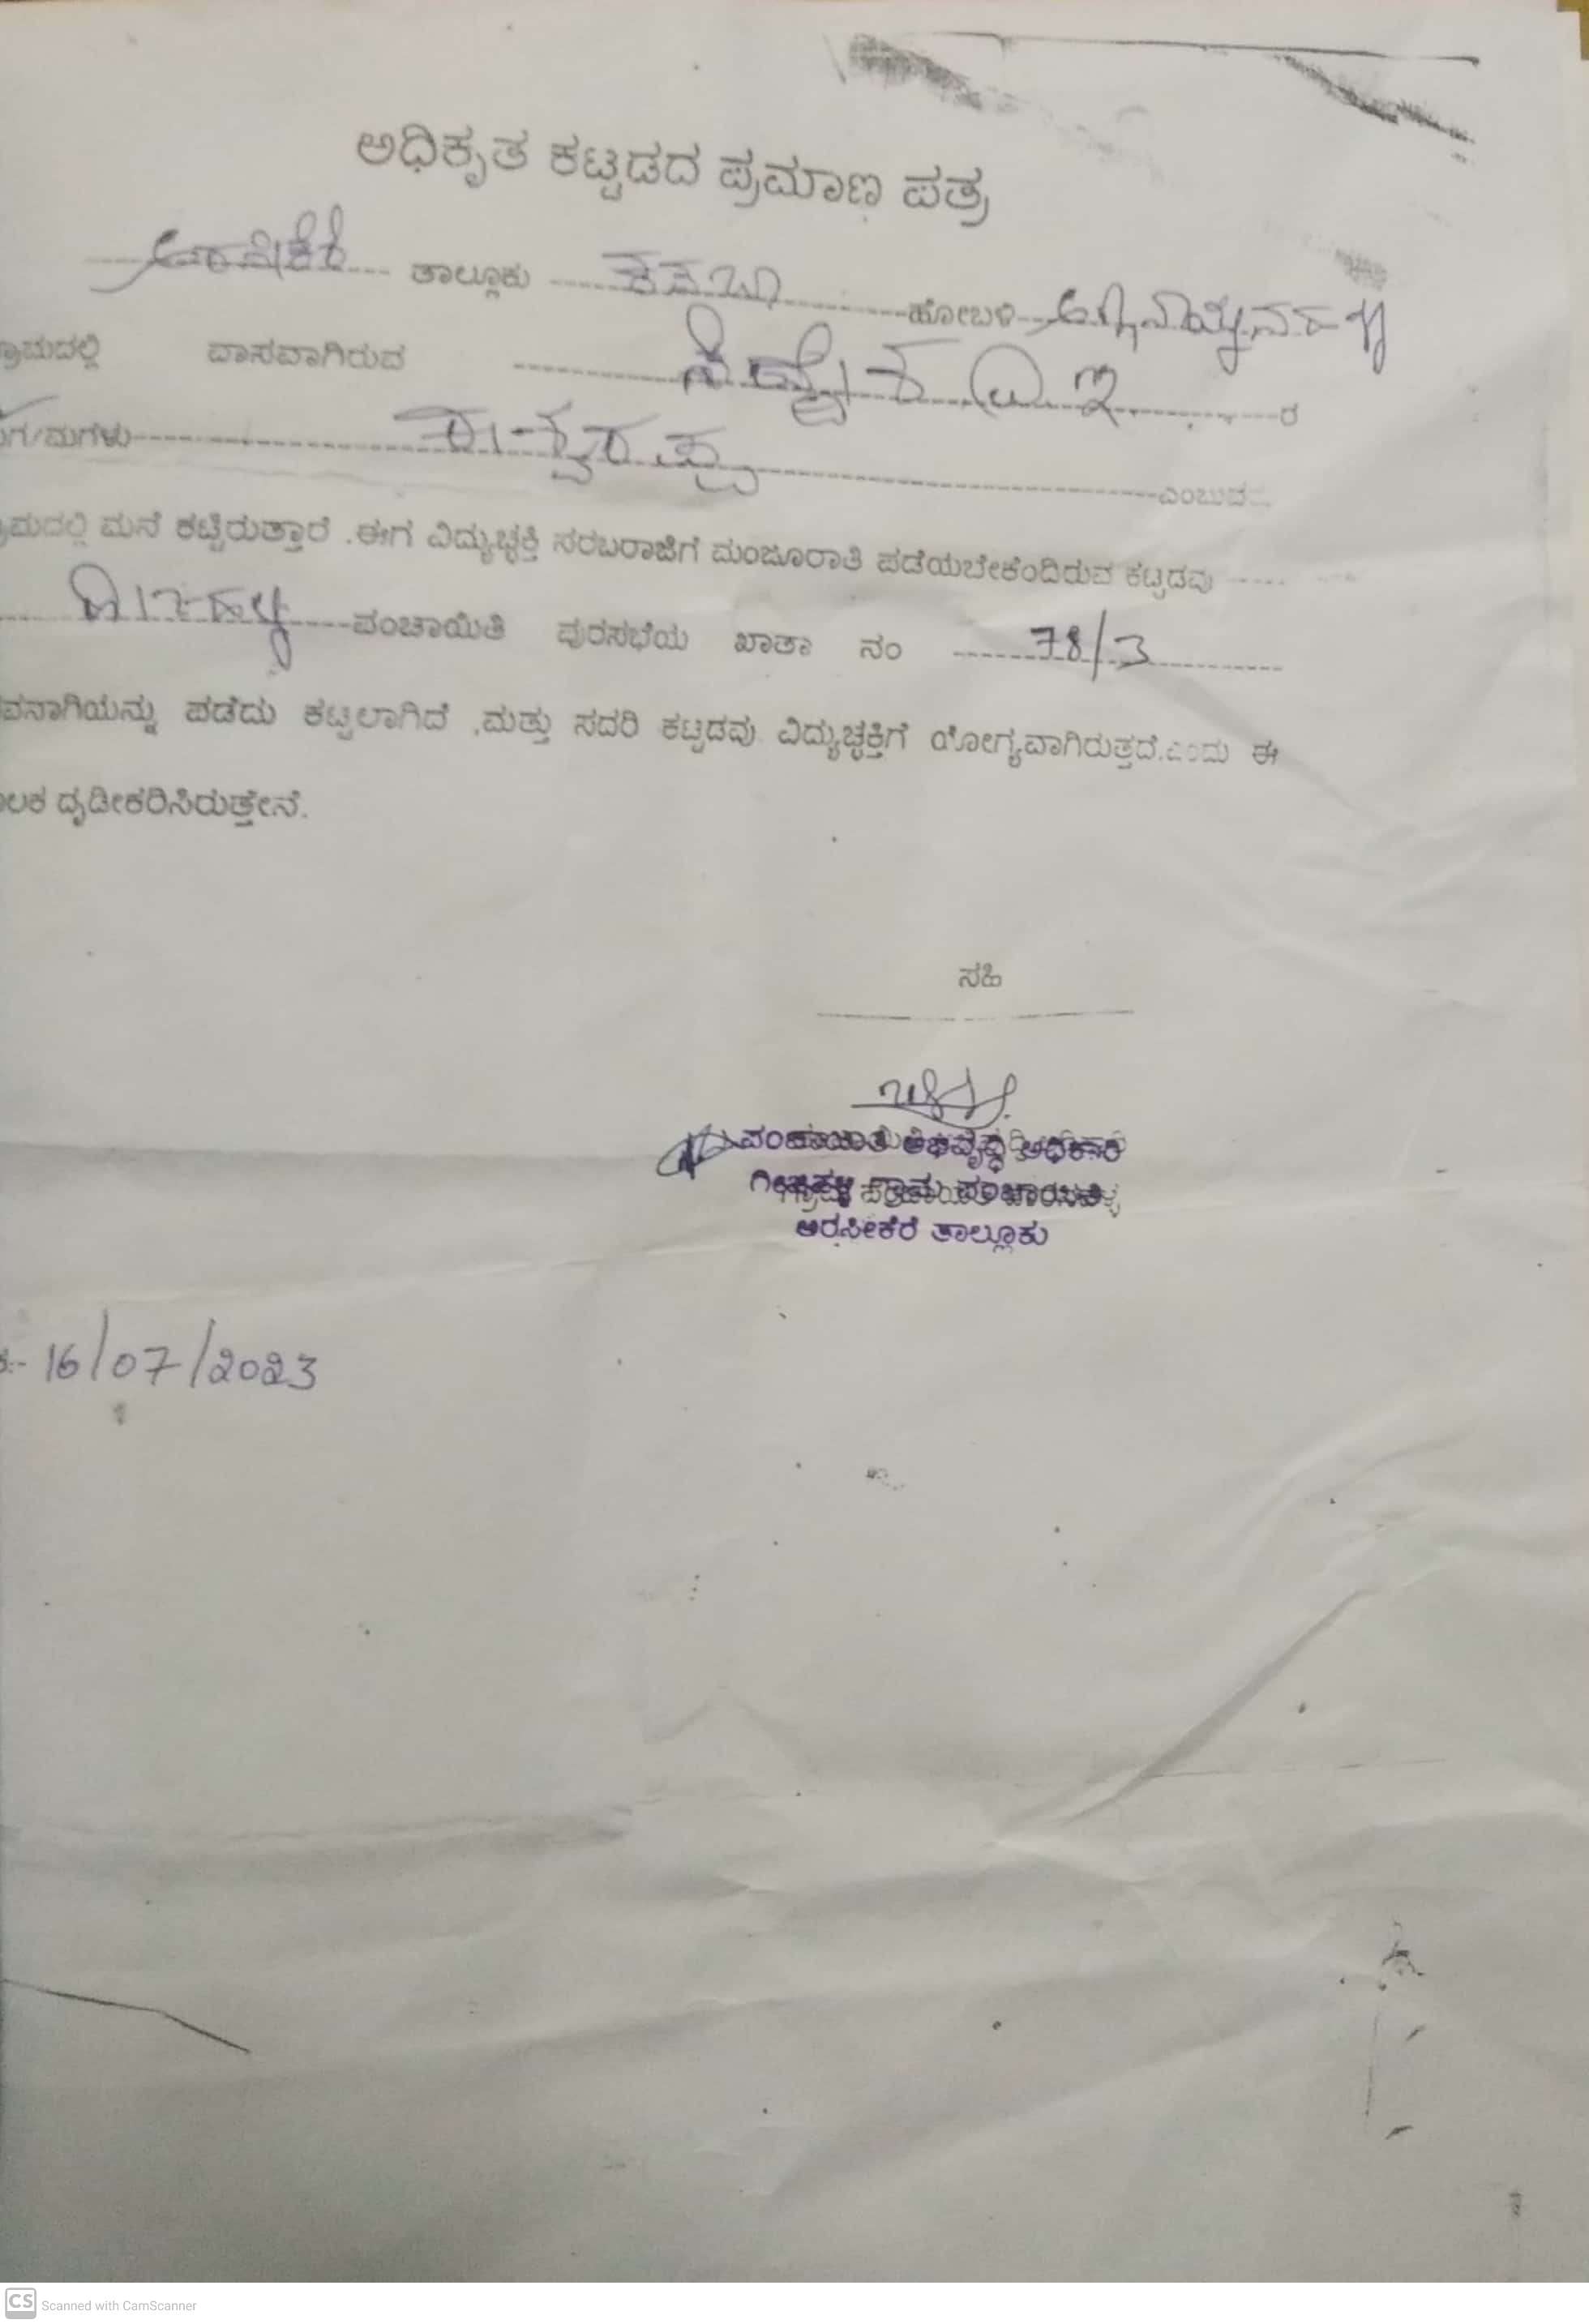 ಅಧಿಕೃತ ಕಟ್ಟಡದ ಪ್ರಮಾಣ ಪತ್ರ
ಅರಸೀಕೆರೆ ತಾಲ್ಲೂಕು ಕಸಬಾ ಹೋಬಳಿ
ವಾಸವಾಗಿರುವ
ಮಗಳು ಈಶ್ವರಪ್ಪ ಎಂಬುವ
ಮನೆ ಕಟ್ಟಿರುತ್ತಾರೆ .ಈಗ ವಿದ್ಯುಚ್ಛಕ್ತಿ ಸರಬರಾಜಿಗೆ ಮಂಜೂರಾತಿ ಪಡೆಯಬೇಕೆಂದಿರುವ ಕಟ್ಟಡವು
ಪಂಚಾಯಿತಿ ಪುರಸಭೆಯ ಖಾತಾ ನಂ 78/3
ಪಡೆದು ಕಟ್ಟಲಾಗಿದೆ ,ಮತ್ತು ಸದರಿ ಕಟ್ಟಡವು ವಿದ್ಯುಚ್ಛಕ್ತಿಗೆ ಯೋಗ್ಯವಾಗಿರುತ್ತದೆ.ಎಂದು ಈ
ದೃಡೀಕರಿಸಿರುತ್ತೇನೆ.
ಸಹಿ
ಅಭಿವೃದ್ಧಿ ಅಧಿಕಾರಿ
ಗ್ರಾಮ ಪಂಚಾಯಿತಿ
ಅರಸೀಕೆರೆ ತಾಲ್ಲೂಕು
16/07/2023
CS Scanned with CamScanner